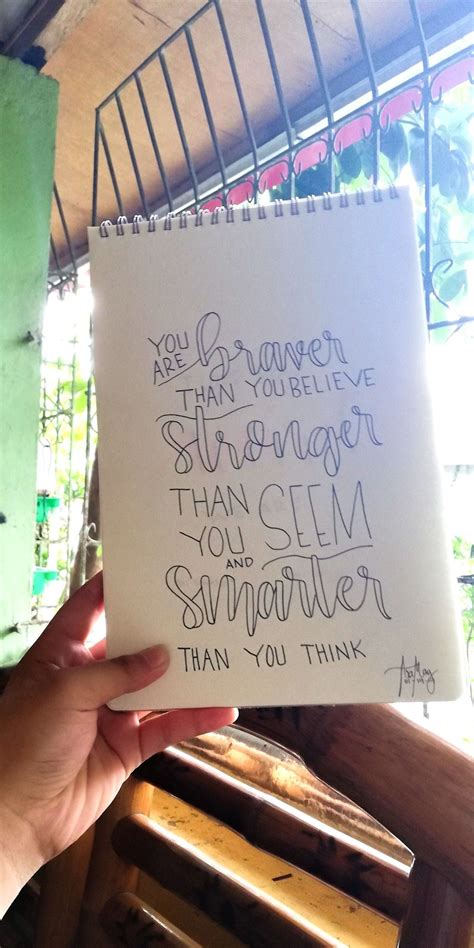 YOU
ARE braver
THAN YOU BELIEVE
Stronger
THAN
YOU SEEM
AND
Smarter
THAN YOU THINK